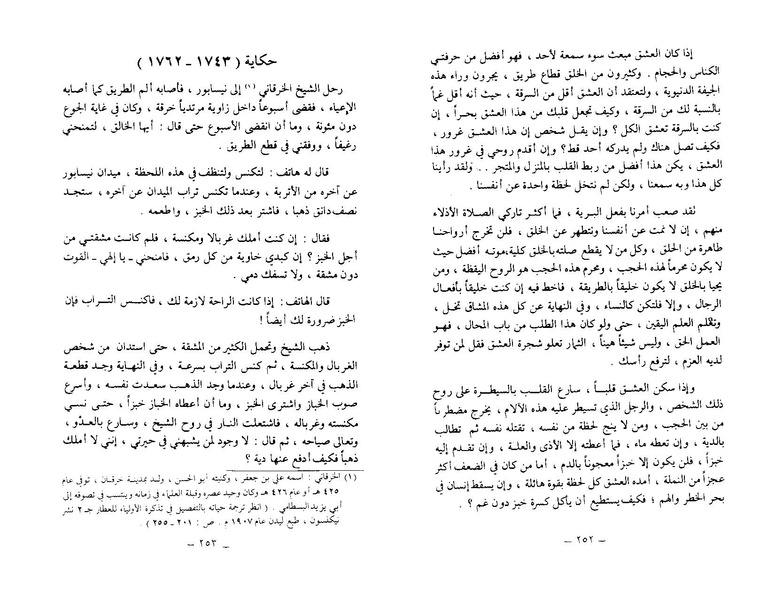 إذا كان العشق مبعث سوء سمعة لأحد ، فهو أفضل من حرفتي
الكناس والحجام . وكثيرون من الخلق قطاع طريق ، يجرون وراء هذه
الجيفة الدنيوية ، ولتعتقد أن العشق أقل من السرقة ، حيث أنه أقل غماً
بالنسبة لك من السرقة ، وكيف تجعل قلبك من هذا العشق بحراً ، إن
كنت بالسرقة تعشق الكل ؟ وإن يقل شخص إن هذا العشق غرور ،
فكيف تصل هناك ولم يدركه أحد قط؟ وإن أقدم روحي في غرور هذا
العشق ، يكن هذا أفضل من ربط القلب بالمنزل والمتجر .. ولقد رأينا
كل هذا وبه سمعنا ، ولكن لم نتخل لحظة واحدة عن أنفسنا .
لقد صعب أمرنا بفعل البرية ، فما أكثر تاركي الصلاة الأذلاء
منهم ، إن لا نمت عن أنفسنا ونتطهر عن الخلق ، فلن تخرج أرواحنا
طاهرة من الحلق ، وكل من لا يقطع صلته بالخلق كلية، موته أفضل حيث
لا يكون محرماً لهذه الحجب ، ومحرم هذه الحجب هو الروح اليقظة ، ومن
يحيا بالخلق لا يكون خليقاً بالطريقة ، فاخط فيه إن كنت خليقاً بأفعال
الرجال ، وإلا فلتكن كالنساء ، وفي النهاية عن كل هذه المشاق تخل ،
وتعلم العلم اليقين ، حتى ولو كان هذا الطلب من باب المحال ، فهو
العمل الحق ، وليس شيئاً هيناً ، الثمار تعلو شجرة العشق فقل لمن توفر
لديه العزم ، لترفع رأسك .
وإذا سكن العشق قلبـاً ، سارع القلب بالسيطرة على روح
ذلك الشخص ، والرجل الذي تسيطر عليه هذه الآلام ، يخرج مضطرباً
من بين الحجب ، ومن لا ينج لحظة من نفسه ، تقتله نفسه ثم تطالب
بالدية ، وإن تعطه ماء ، فما أعطته إلا الأذى والعلة ، وإن تقدم إليه
خبزاً ، فلن يكون إلا خبزاً معجوناً بالدم ، أما من كان في الضعف أكثر
عجزاً من النملة ، أمده العشق كل لحظة بقوة هائلة ، وإن يسقط إنسان في
بحر الخطر والهم ؛ فكيف يستطيع أن يأكل كسرة خبز دون غم ؟ .
– ٢٥٢ –
حكاية ( ١٧٤٣ – ١٧٦٢ )
رحل الشيخ الخرقاني (١) إلى نيسابور ، فأصابه ألم الطريق كما أصابه
الإعياء ، فقضى أسبوعاً داخل زاوية مرتدياً خرقة ، وكان في غاية الجوع
دون مئونة ، وما أن انقضى الأسبوع حتى قال : أيها الخالق ، لتمنحني
رغيفاً ، ووفقني في قطع الطريق .
قال له هاتف : لتكنس ولتنظف في هذه اللحظة ، ميدان نيسابور
عن آخره من الأتربة ، وعندما تكنس تراب الميدان عن آخره ، ستجد
نصف دانق ذهبا ، فاشتر بعد ذلك الخبز ، واطعمه .
فقال : إن كنت أملك غربالا ومكنسة ، فلم كانت مشقتي من
أجل الخبز ؟ إن كبدي خاوية من كل رمق ، فامنحني – يا إلهي – القوت
دون مشقة ، ولا تسفك دمي .
قال الهاتف : إذا كانت الراحة لازمة لك ، فاكنس التراب فإن
الخبز ضرورة لك أيضاً !
ذهب الشيخ وتحمل الكثير من المشقة ، حتى استدان من شخص
الغربال والمكنسة ، ثم كنس التراب بسرعة ، وفي النهاية وجد قطعة
الذهب في آخر غربال ، وعندما وجد الذهب سعدت نفسه ، وأسرع
صوب الخباز واشترى الخبز ، وما أن أعطاه الخباز خبزاً ، حتى نسي
مكنسته وغرباله ، فاشتعلت النار في روح الشيخ ، وسارع بالعدو ،
وتعالى صياحه ، ثم قال : لا وجود لمن يشبهني في حيرتي ، إنني لا أملك
ذهباً فكيف أدفع عنها دية ؟
(١) الخرقاني : اسمه علي بن جعفر ، وكنيته أبو الحسن ، ولد بمدينة خرقان ، توفي عام
٤٢٥ هـ أو عام ٤٢٦ هـ وكان وحيد عصره وقبلة العلماء في زمانه وينتسب في تصوفه إلى
أبي يزيد البسطامي . ( انظر ترجمة حياته بالتفصيل في تذكرة الأولياء للعطار جـ ٢ نشر
نيكلسون ، طبع ليدن عام ١٩٠٧ م . ص : ٢٠١ – ٢٥٥ ) .
– ٢٥٣ –